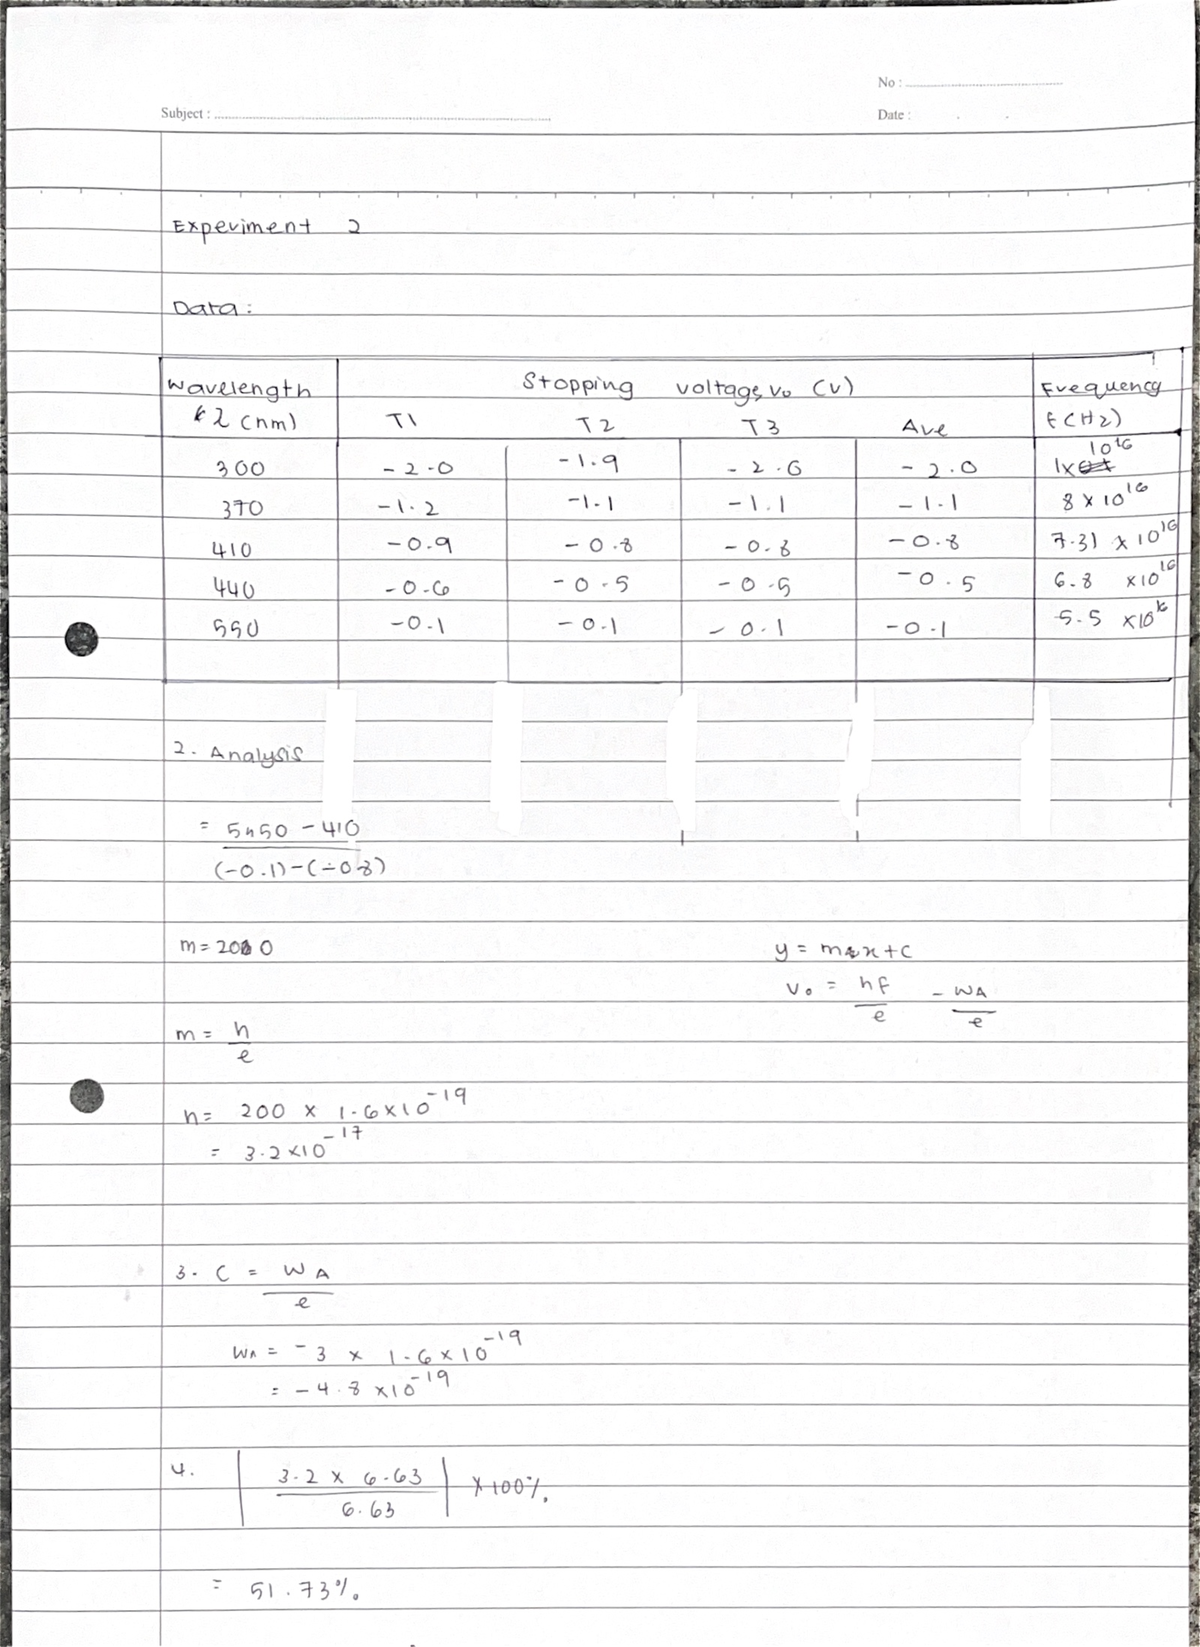 No :
Subject :
Date :
Experiment 2
Data :
Wavelength Stopping voltage, V₀ (V) Frequency
λ (nm) T1 T2 T3 Ave f (Hz)
300 -2.0 -1.9 -2.0 -2.0 1x 10¹⁶
370 -1.2 -1.1 -1.1 -1.1 8 x 10¹⁶
410 -0.9 -0.8 -0.8 -0.8 7.31 x 10¹⁶
440 -0.6 -0.5 -0.5 -0.5 6.8 x10¹⁶
550 -0.1 -0.1 -0.1 -0.1 5.5 x10¹⁶
2. Analysis
= 550 - 410
(-0.1)-(-0.8)
m = 200
y = mx + c
V₀ = hf/e - WA/e
m = h/e
h = 200 x 1.6x10⁻¹⁹
= 3.2 x10⁻¹⁷
3. C = WA/e
WA = -3 x 1.6 x 10⁻¹⁹
= -4.8 x10⁻¹⁹
4. | 3.2 x 6.63 / 6.63 | x 100%
= 51.73%